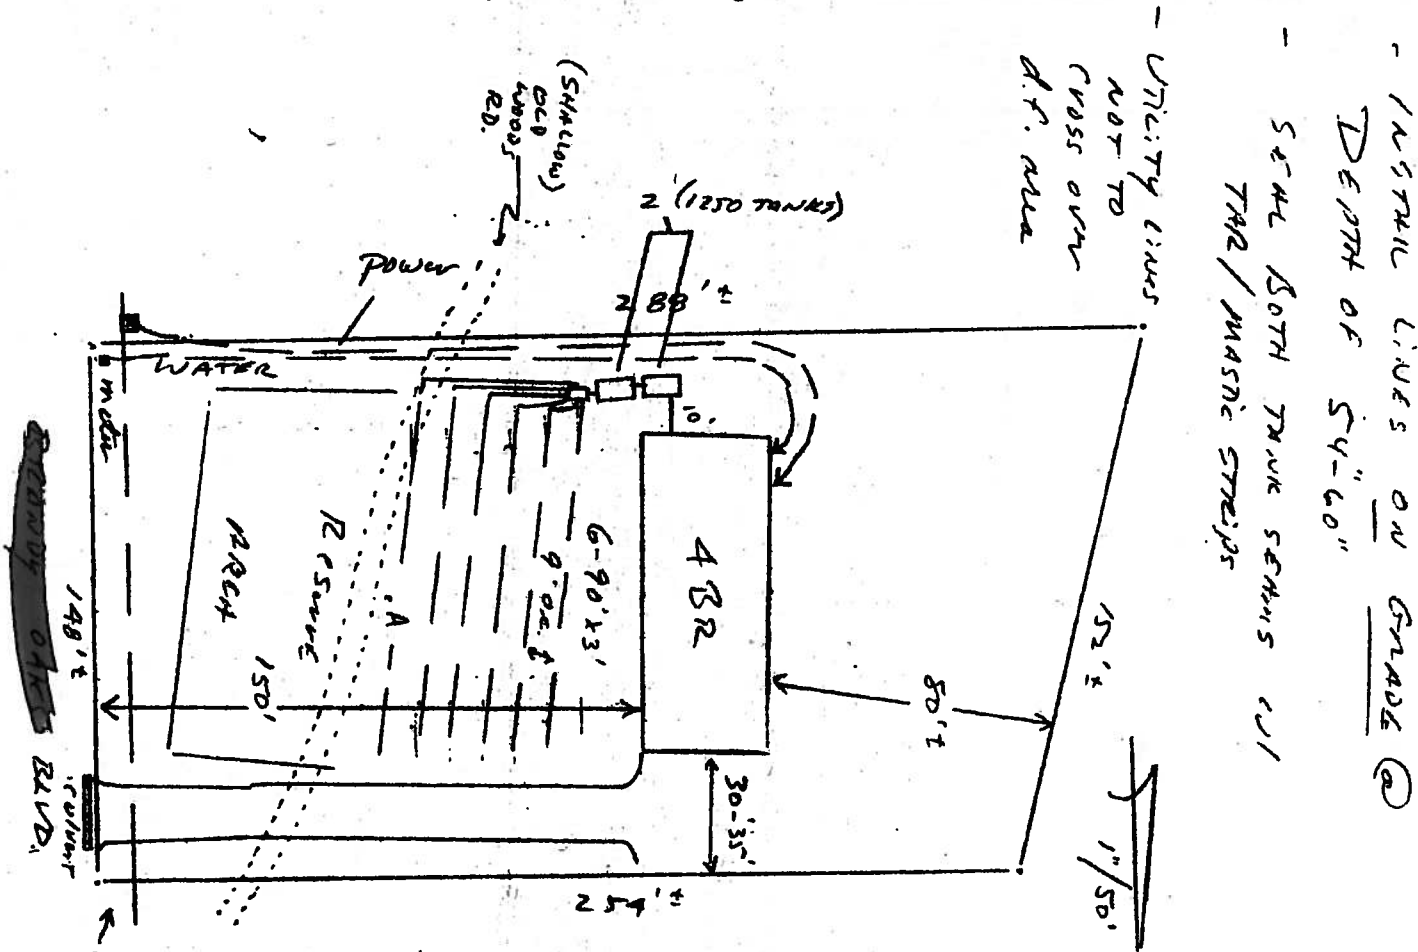 - INSTALL LINES ON GRADE @
DEPTH OF 54"-60"
- SEAL BOTH TANK SEAMS W/
TAR/MASTIC STRIPS
- UTILITY LINES
NOT TO
CROSS OVER
d.f. Area
(SHALLOW)
OLD
WOODS
RD.
2 (1250 TANKS)
POWER
288'±
WATER
meter
10'
4 BR
6-90'x3'
9' o.c.
A
Reserve
AREA
150'
80'±
152'±
30-35'
148'±
BLVD.
culvert
254'±
1"/50'